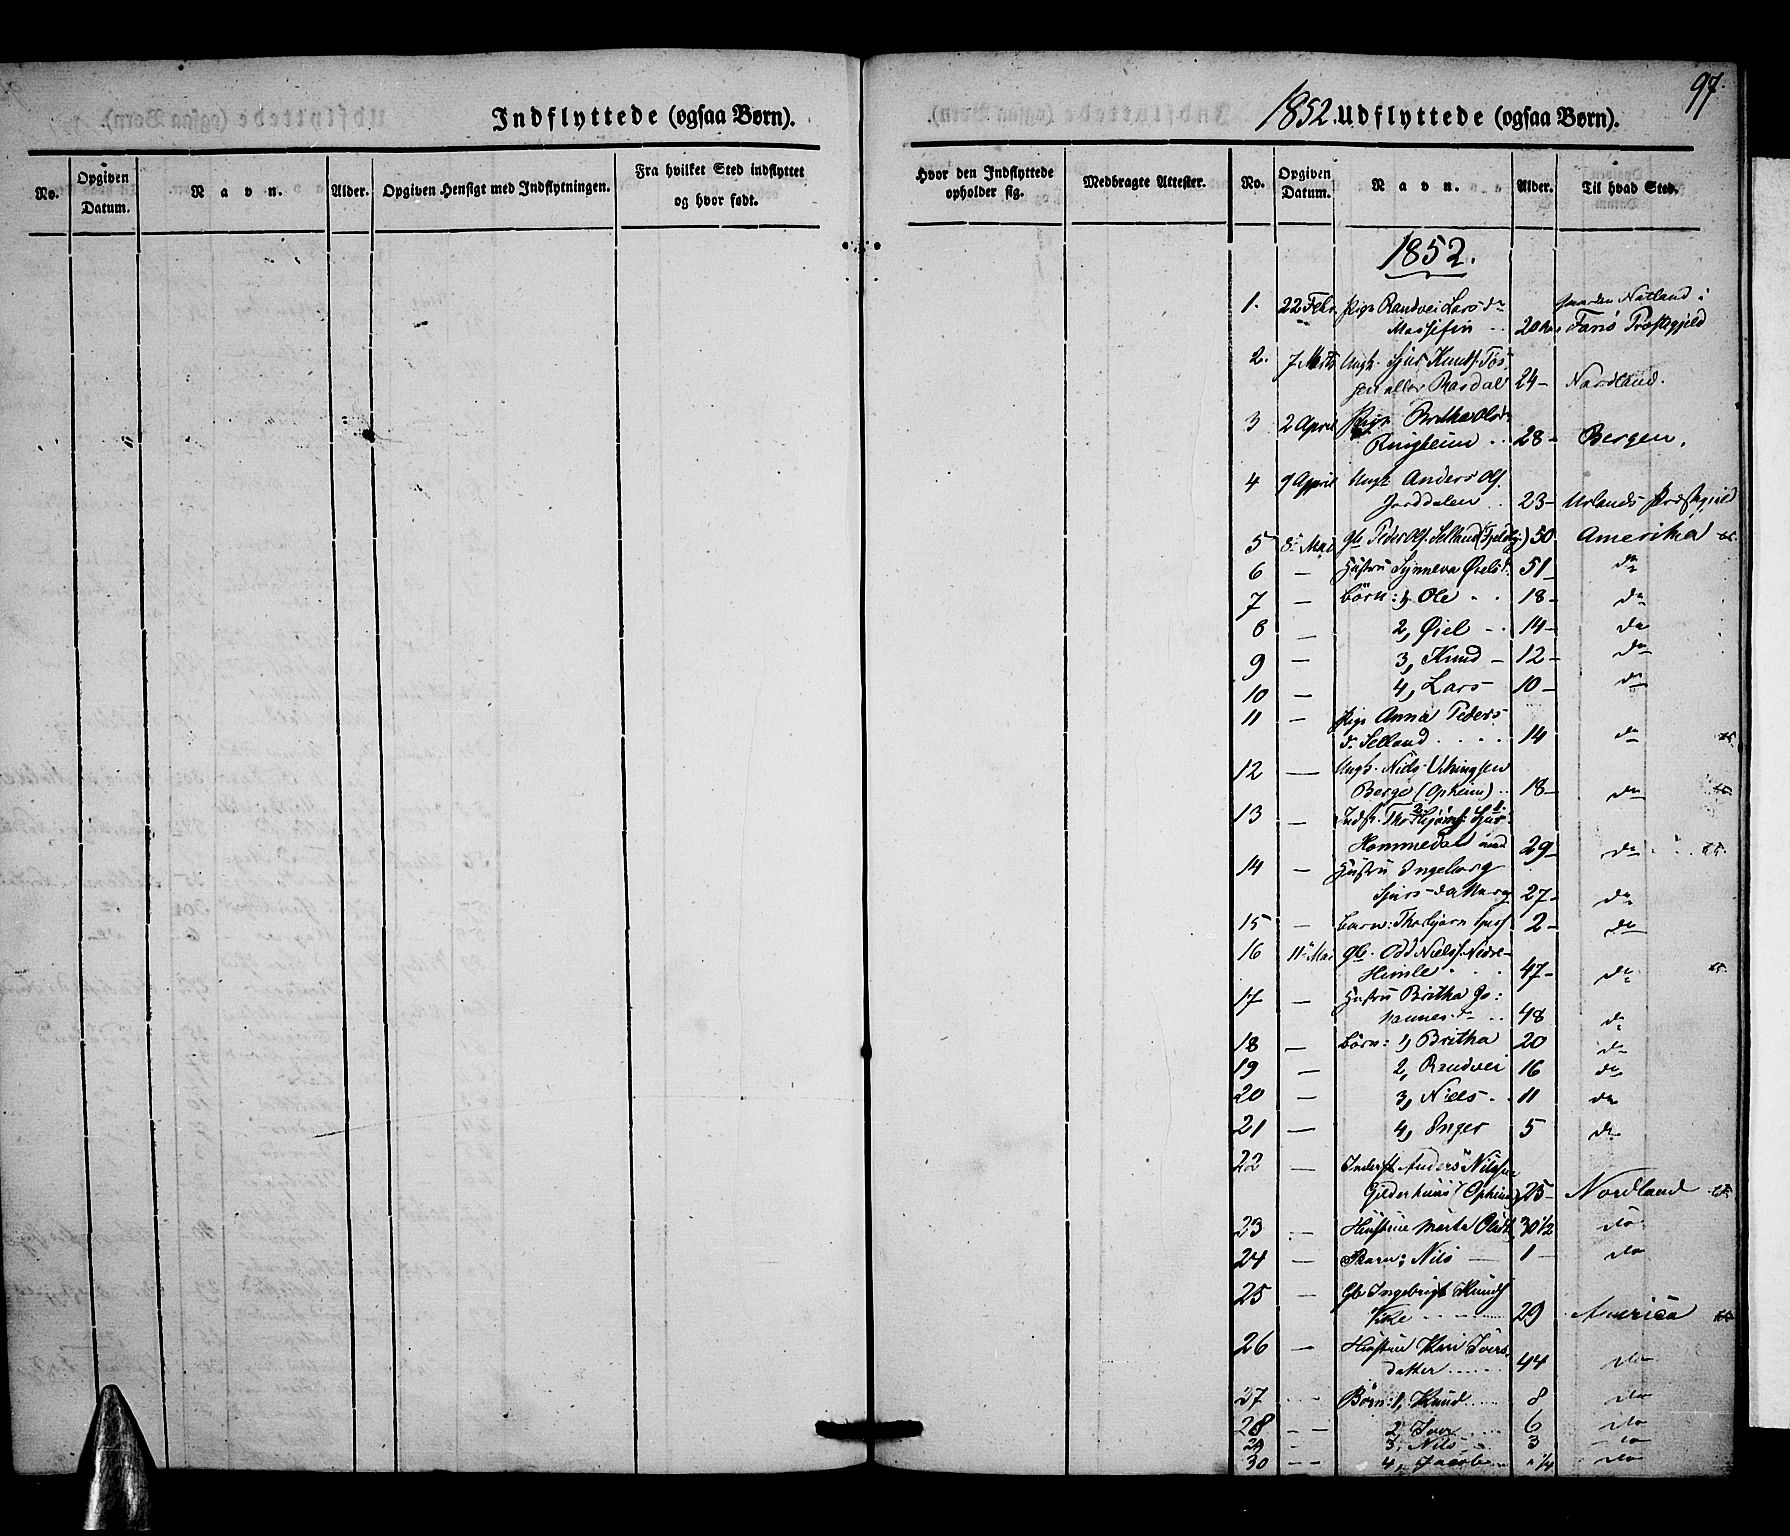 97.
Indflyttede (ogsaa Børn).
No.
Opgiven Datum.
Navn.
Alder.
Opgiven Hensigt med Indflytningen.
Fra hvilket Sted indflyttet og hvor født.
1852. Udflyttede (ogsaa Børn).
Hvor den Indflyttede opholder sig.
Medbragte Attester.
No.
Opgiven Datum.
Navn.
Alder.
Til hvad Sted.
1852.
1. 22 Febr. Pige Randvei Lars dr
20 Natland i
Præstegjeld
2. 7 Marts Ungk. Sjur Knuds.
eller Rasdal 24 - Nordland.
3 2 April Pige Britha Olsdr
Ringheim .. 28 - Bergen.
4 9 April Ungk. Anders Ols.
Jorddalen .. 23 - Urlands Præstegjeld
5 8 Mai Gb. Peder Ols. Selland 50 Amerika
6 — Hustru Synneva Øielsd. 51 - do
7 — Børn: 1, Ole . . 18 - do
8 — 2, Øiel - . 14 - do
9 — 3, Knud - 12 - do
10 — 4, Lars - 10 - do
11 — Pige Anna Peders
d. Selland . . . . 14 do
12 — Ungk. Niels Vikingsen
Berge (Opheim) .. 18 - do
13 — Indst. Sjur
Hommedal med 29 - do
14 — Hustru Ingeborg
Sjurs-datter 27 - do
15 — Barn: Thorbjørn 2 - do
16 11 Mai Gb. Odd Niels. Nedre-
Himle . . 47 - do
17 — Hustru Britha Jo:
hannes d. .. 48 do
18 — Børn: 1, Britha 20 do
19 — 2, Randvei 16 do
20 — 3, Niels . . 11 do
21 — 4, Inger 5 do
22 — Inderst Anders Nilssen
Gilderhuus (Opheim) 25 - Nordland
23 — Hustrue Marta 30 1/2 do
24 — Barn: Nils — 1 - do
25 — Gb Ingebrigt Knuds
29 America
26 — Hustrue Kari Ivers-
datter ..... 44 do
27 - - Børn: 1, Knud .... 8 do
28 - - 2, Iver .... 6 do
29 - 3, Nils .. 3 do
30 - - 4, Jacob ... 1/4 do